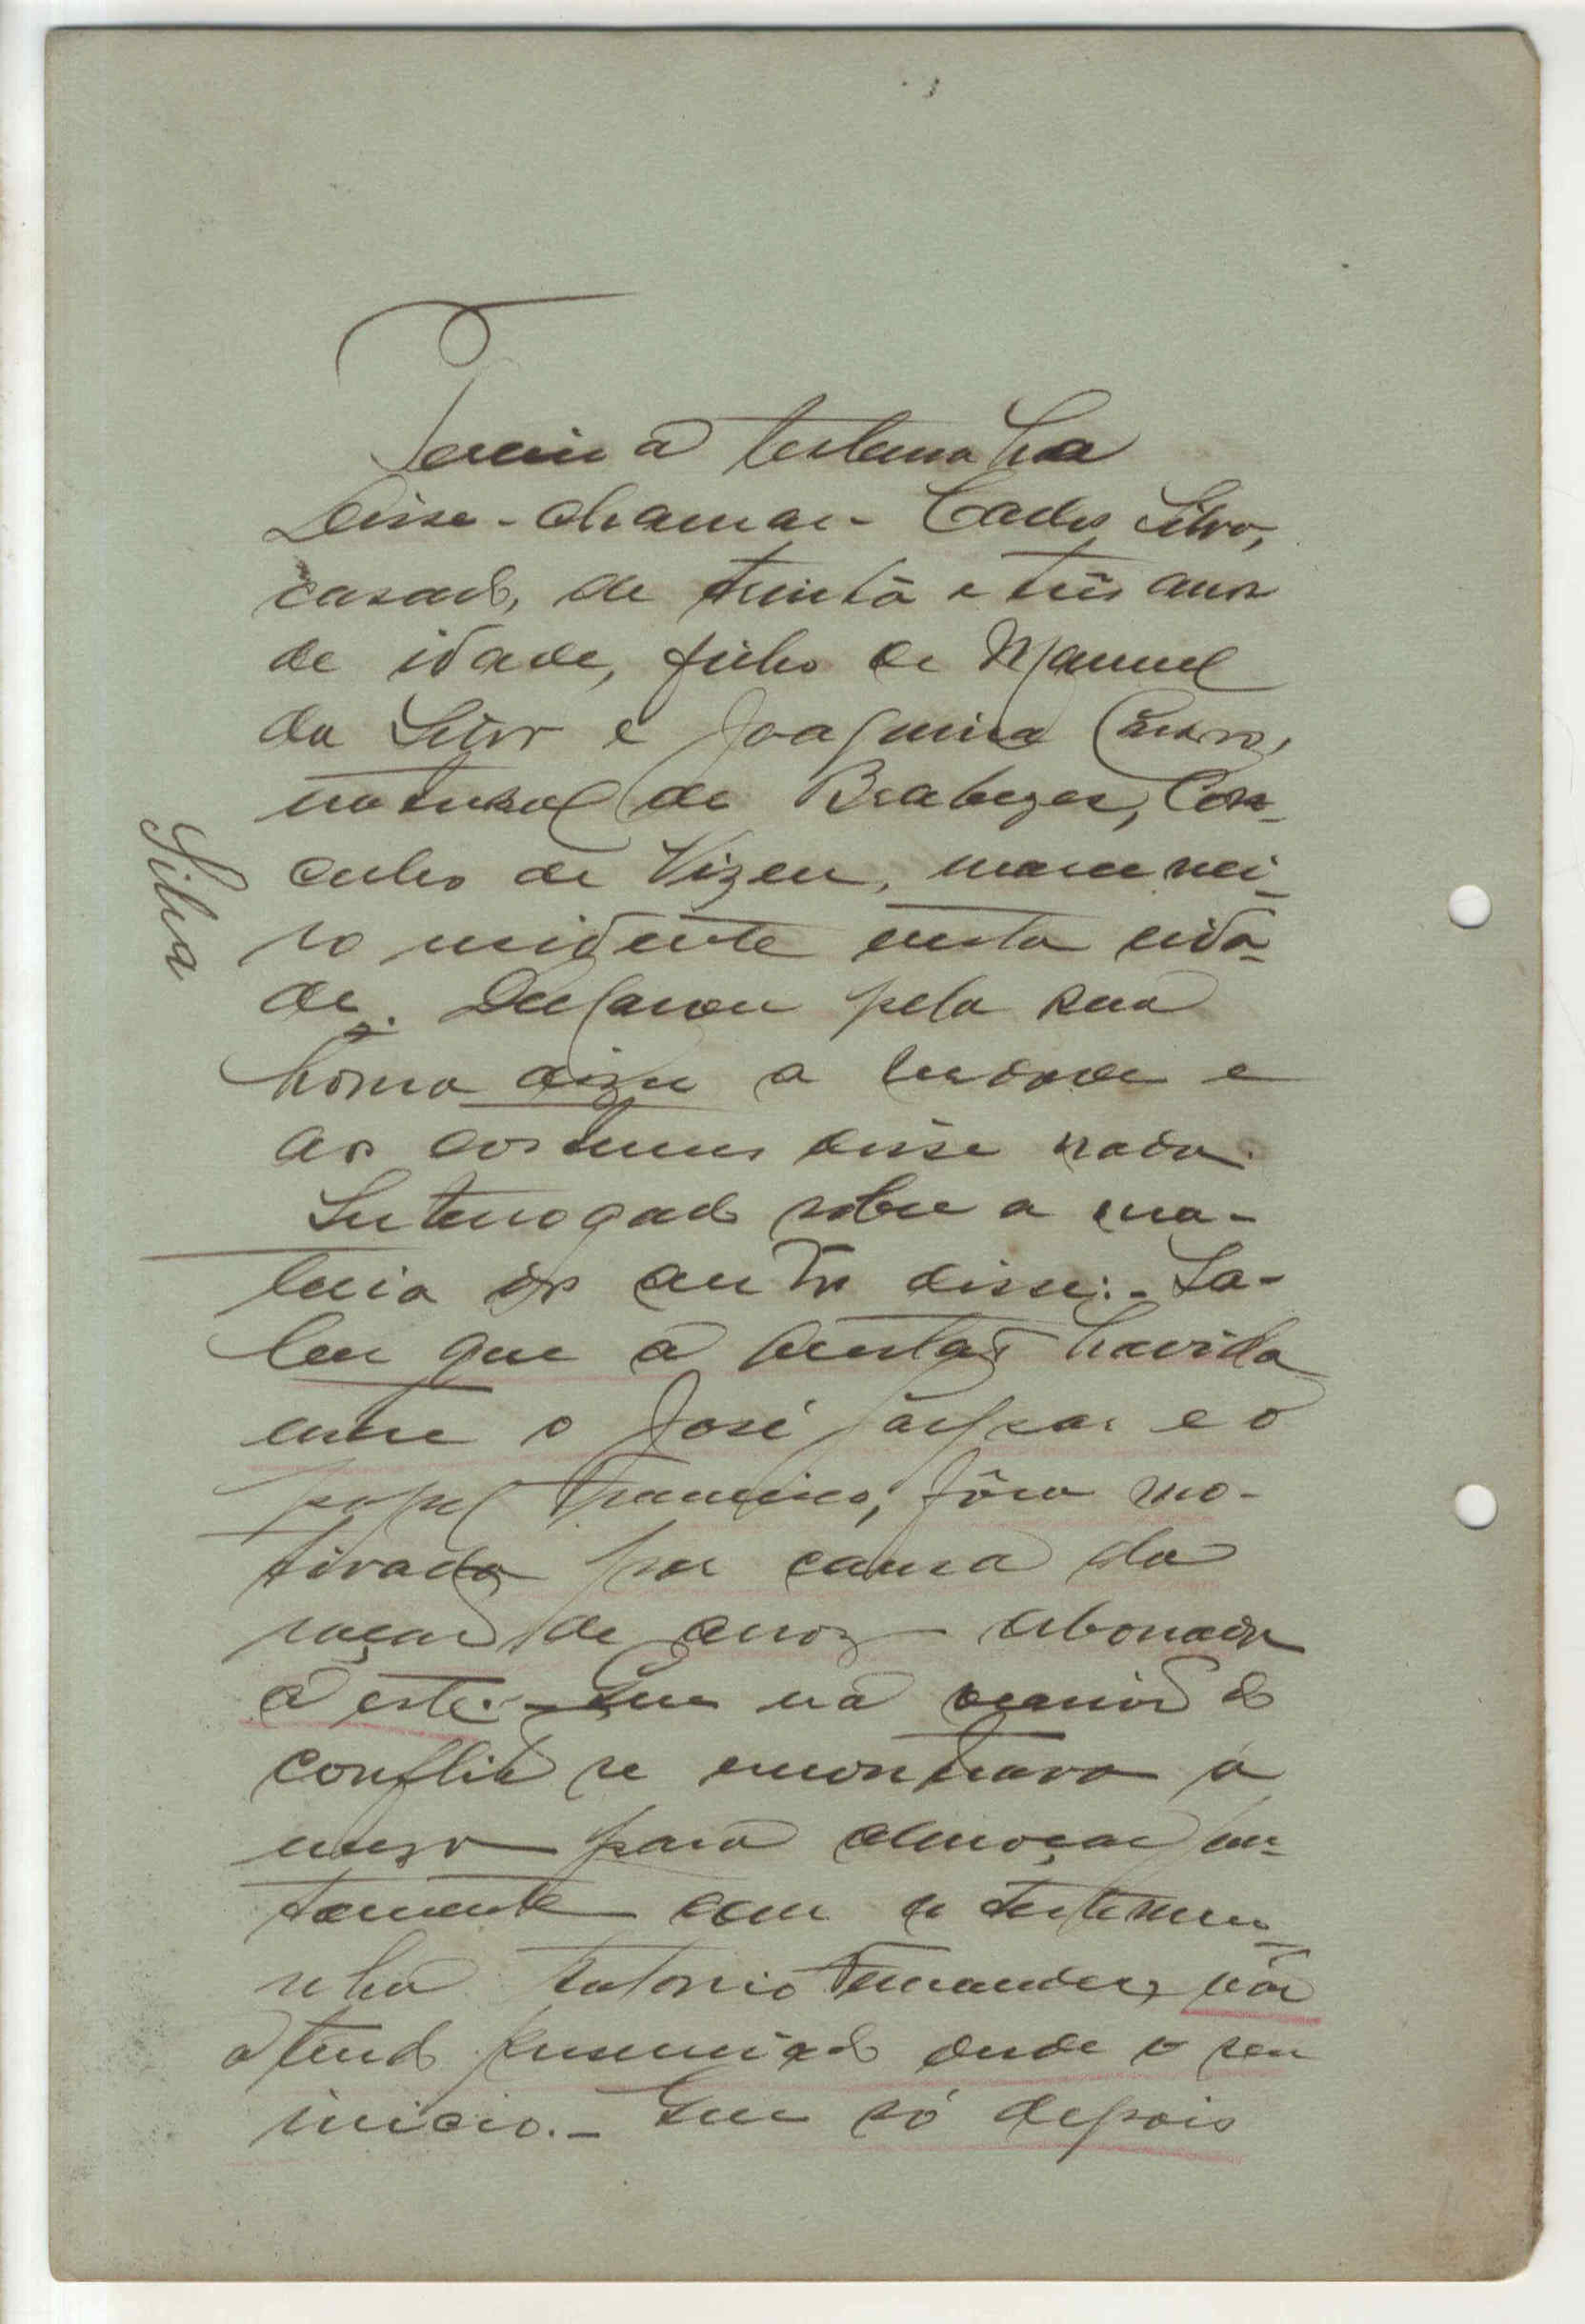 Terceira testemunha
Disse-chamar- Carlos Silva,
casado, de trinta e três anos
de idade, filho de Manuel
da Silva e Joaquina
natural de Con-
celho de Vizeu, marcenei-
ro residente nesta cida-
de. Declarou pela sua
honra dizer a verdade e
aos costumes disse nada.
Interrogado sobre a ma-
teria dos autos disse:- Sa-
ber que a questão havida
entre o José Gaspar e o
Francisco, fôra mo-
tivada por causa da
ração de arroz abonada
a este.- Que na ocasião do
conflito se encontrava á
meza para almoçar jun-
tamente com a testemu-
nha Antonio Fernandes, não
o tendo presenciado desde o seu
inicio.- Que só depois
Silva